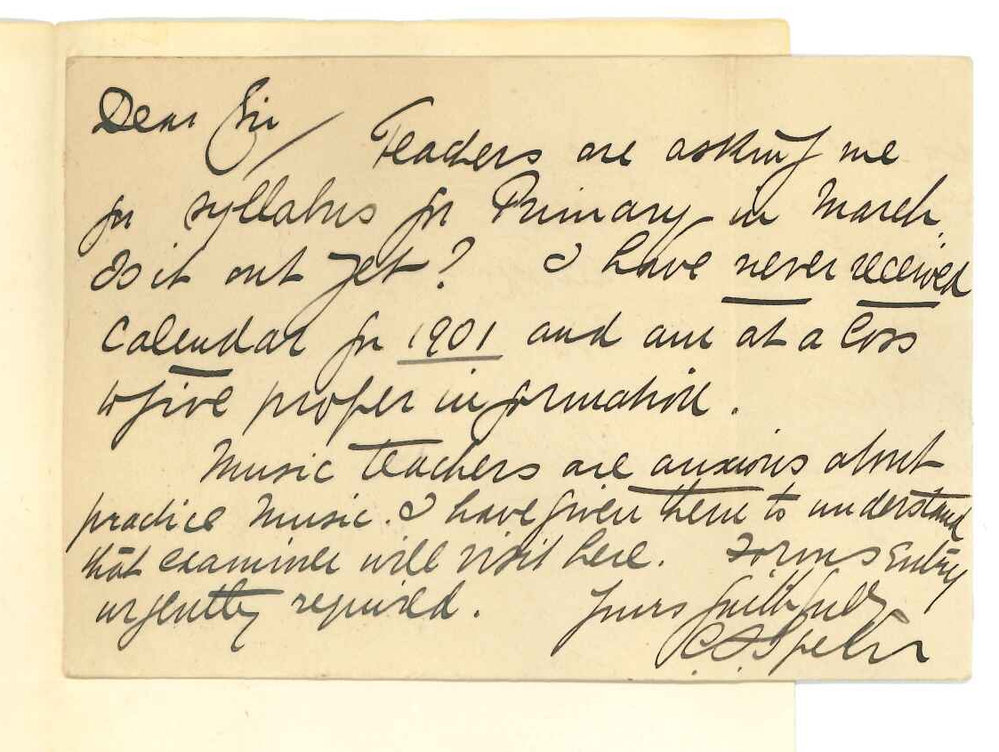 Dear Sir
Teachers are asking me
for syllabus for Primary in March.
Is it out yet? I have never received
Calendar for 1901 and am at a loss
to give proper information.
Music teachers are anxious about
practice Music. I have given them to understand
that examiner will visit here. Forms Entry
urgently required. Yours faithfully